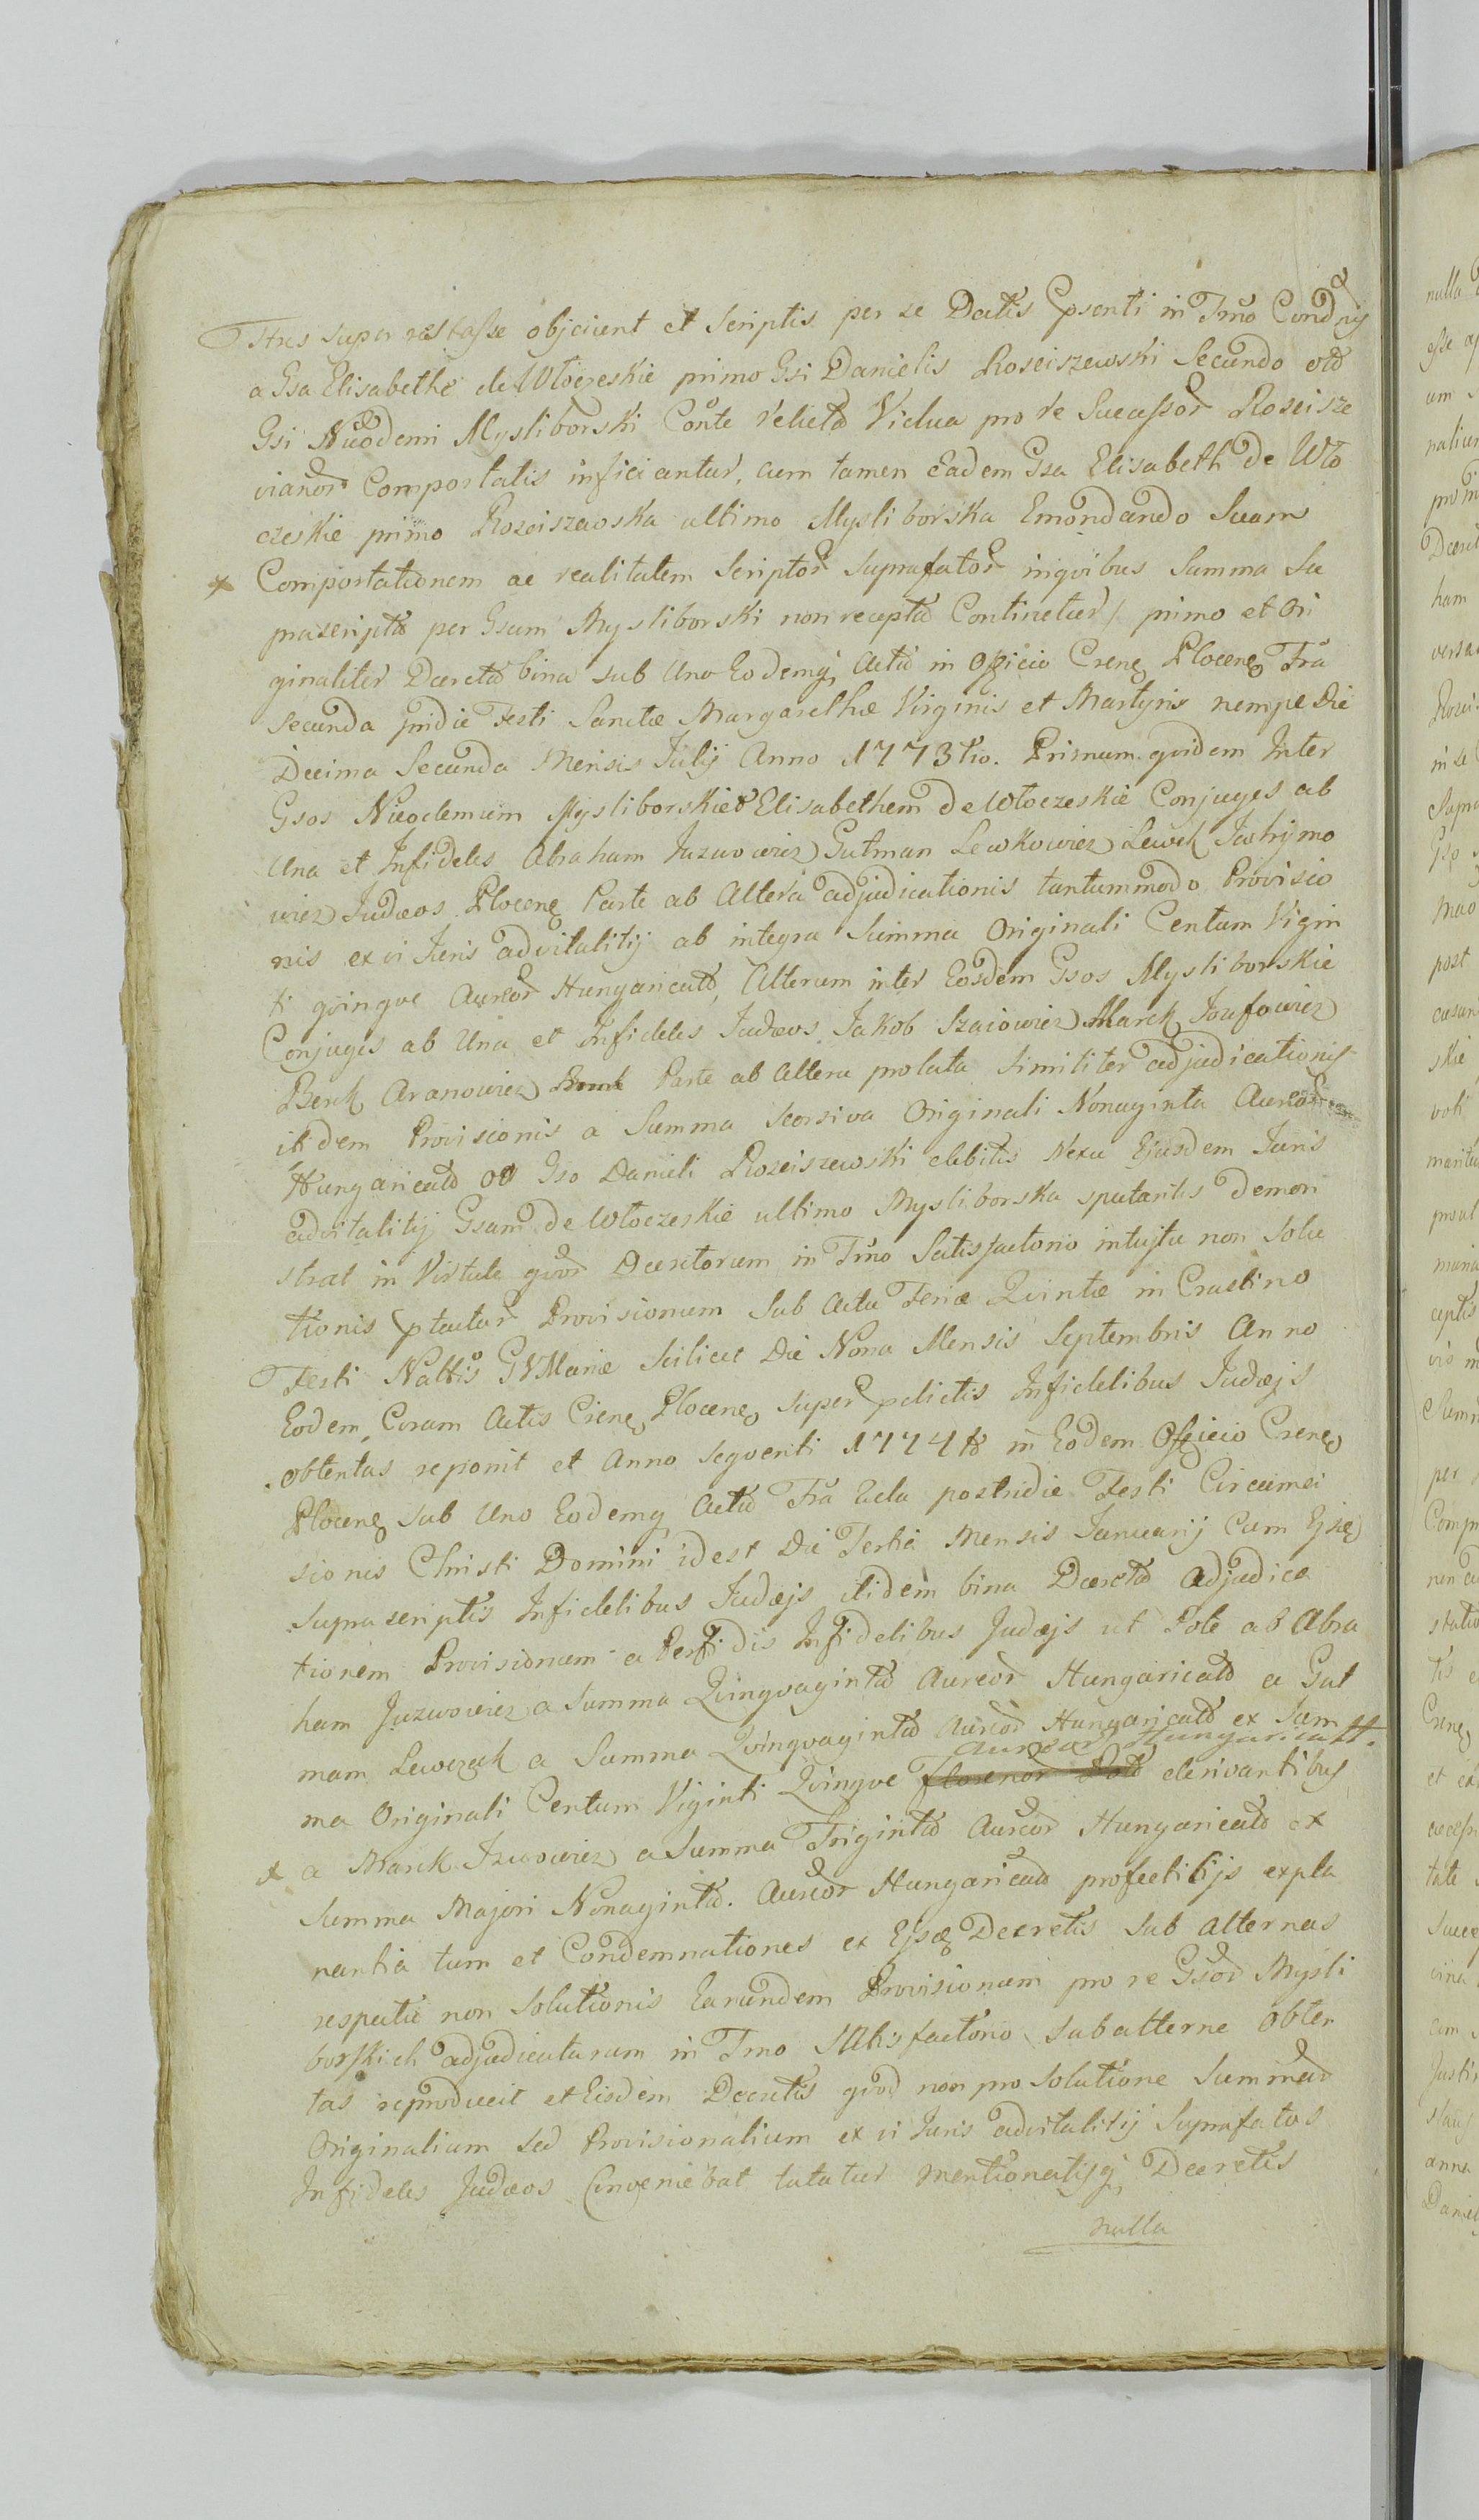 Ttres super restasse objciunt et Scriptis per se Datis Ppsenti in Trno Condng
a Gsa Elisabethe de Włoczeskie primo Gsi Danielis Rosciszewski Secundo oto
Gsi Nicodemi Mysliborski Conte relicta Vidua pro re Sucessor Rosisze
vianor Comportatis inficiantur, cum tamen Eadem Gsa Elisabeth de Wło
czeskie primo Rosciszewska ultimo Mysliborska Emondando Suam
Comportationem ac realitatem Scriptor Suprafator inqvibus Summa Su
prascripta per Gsum Mysliborski non recepta Continetur / primo et Ori
ginaliter Decreta bina sub Uno Eodemq Actu in Officio Crens Plocens Fria
Secunda pridie Festi Sanctæ Margarethæ Virginis et Martyris nempe Die
Decima Secunda Mensis Julij Anno 1773tio. Primum qvidem Inter
Gsos Nicodemum Mysliborski et Elisabethem de Włoczeskie Conjuges ab
Una et Infideles Abraham Juzwowicz Gutman Lewkowicz Lewek Jachymo
wicz Judæos Plocens Parte ab Altera adjudicationis tantummodo Provisio
nis ex vi Juris advitalitij ab integra Summa Originali Centum Vigin
ti qvinqve Aureor Hungaricato, Alterum inter Eosdem Gsos Mysliborskie
Conjuges ab Una et Infideles Judæos Jakob Szaiowicz Marek Jozefowicz
Berek Aranowicz Parte ab Altera prolata similiter adjudicationis
itidem Provisionis a Summa seorsiva Originali Nonaginta Aureor
Hungaricato Gso Danieli Rosciszewski debitis Nexu Ejusdem Juris
advitalitij Gsam de Włoczeskie ultimo Mysliborska sputantis demon
strat in Virtute qvor Decretorum in Trno Satisfactorio intujtu non Solu
tionis ptatar Provisionum Sub Actu Feriæ Qvintæ in Crastino
Festi Nattis GVMariæ Scilicet Die Nona Mensis Septembris Anno
Eodem Coram Actis Crens Plocens Super pdictis Infidelibus Judæjs
obtentas reponit et Anno seqventi 1774to in Eodem Officio Crens
Plocens sub Uno Eodemq Actu Fria 2da postridie Festi Circumci
sionis Christi Domini idest Die Tertia Mensis Januarij Cum Ejsdq
Suprascriptis Infidelibus Judæjs itidem bina Decreta Adjudica
tionem Provisionum a Perfidis Infidelibus Judæjs ut Pote ab Abra
ham Juzwowicz a Summa Qvinqvaginta Aureor Hungaricato a Gut
mam Lewczak a Summa Qvinqvaginta Aureor Hungaricato ex Sum
Aureor Hungaricatt.
ma Originali Centum Viginti Qvinqve derivantibus
a Marek Jzwowicz a Summa Triginta Aureor Hungaricato ex
Summa Majori Nonaginta. Aureor Hungaricato profectitijs expla
nantia tum et Condemnationes ex Ejsdq Decretis Sub alternas
respectu non Solutionis Earundem Provisionum pro re Gsor Mysli
borskich adjudicatarum in Trno Satisfactorio Subalterne obten
tas reproducit et Eisdem Decretis qvod non pro Solutione Summar
Originalium sed Provisionalium ex vi Juris advitalitij Suprafatos
Infideles Judæos Conveniebat tutatur mentionatisq Decretis
nulla